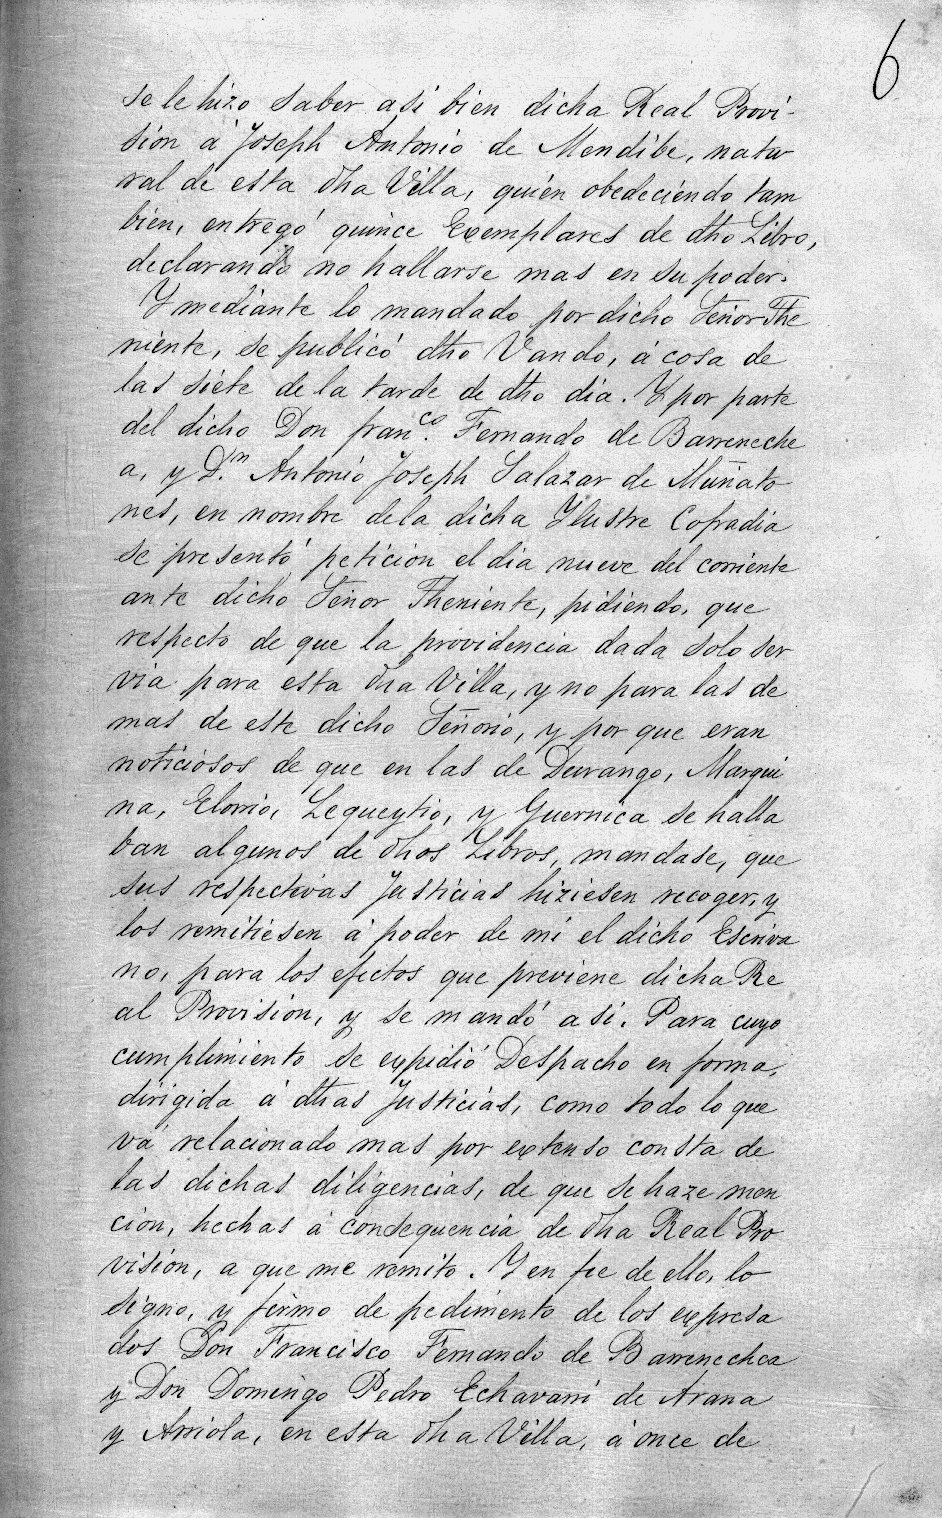 6
se le hizo saber asi bien dicha Real Provi-
sion á Joseph Antonio de Mendibe, natu
ral de esta dha Villa, quién obedeciendo tam
bien, entregó quince Exemplares de dho Libro,
declarando no hallarse mas en su poder.
Y mediante lo mandado por dicho Señor The
niente, se publicó dho Vando, á cosa de
las siete de la tarde de dho dia. Y por parte
del dicho Don fran.co Fernando de Barreneche
a, y D.n Antonio Joseph Salazar de Muñato
nes, en nombre dela dicha Ylustre Cofradia
se presentó peticion el dia nueve del corriente
ante dicho Señor Theniente, pidiendo, que
respecto de que la providencia dada solo ser
via para esta dha Villa, y no para las de
mas de este dicho Señorio, y por que eran
noticiosos de que en las de Durango, Marqui
na, Elorrio, Lequeytio, y Guernica se halla
ban algunos de dhos Libros, mandase, que
sus respectivas Justicias hiziesen recoger, y
los remitiesen á poder de mi el dicho Escriva
no, para los efectos que previene dicha Re
al Provision, y se mandó asi. Para cuyo
cumplimiento se expidió Despacho en forma,
dirigida á dhas Justicias, como todo lo que
vá relacionado mas por extenso consta de
las dichas diligencias, de que se haze men
cion, hechas á consequencia de dha Real Pro
vision, a que me remito. Y en fee de ello, lo
signo, y firmo de pedimento de los expresa
dos Don Francisco Fernando de Barrenechea
y Don Domingo Pedro Echavarri de Arana
y Arriola, en esta dha Villa, á once de